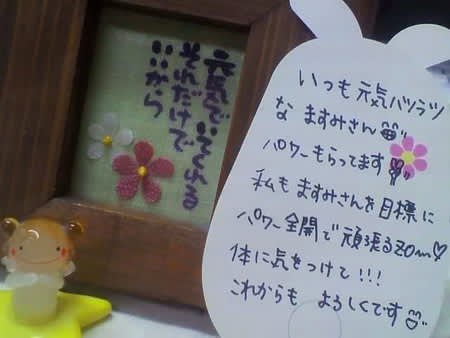 元気でいてくれる
それだけで
いいから
いつも元気ハツラツ
な ますみさん
パワーもらってます
私も ますみさんを目標に
パワー全開で頑張るZO〜♡
体に気をつけて!!!
これからも よろしくです